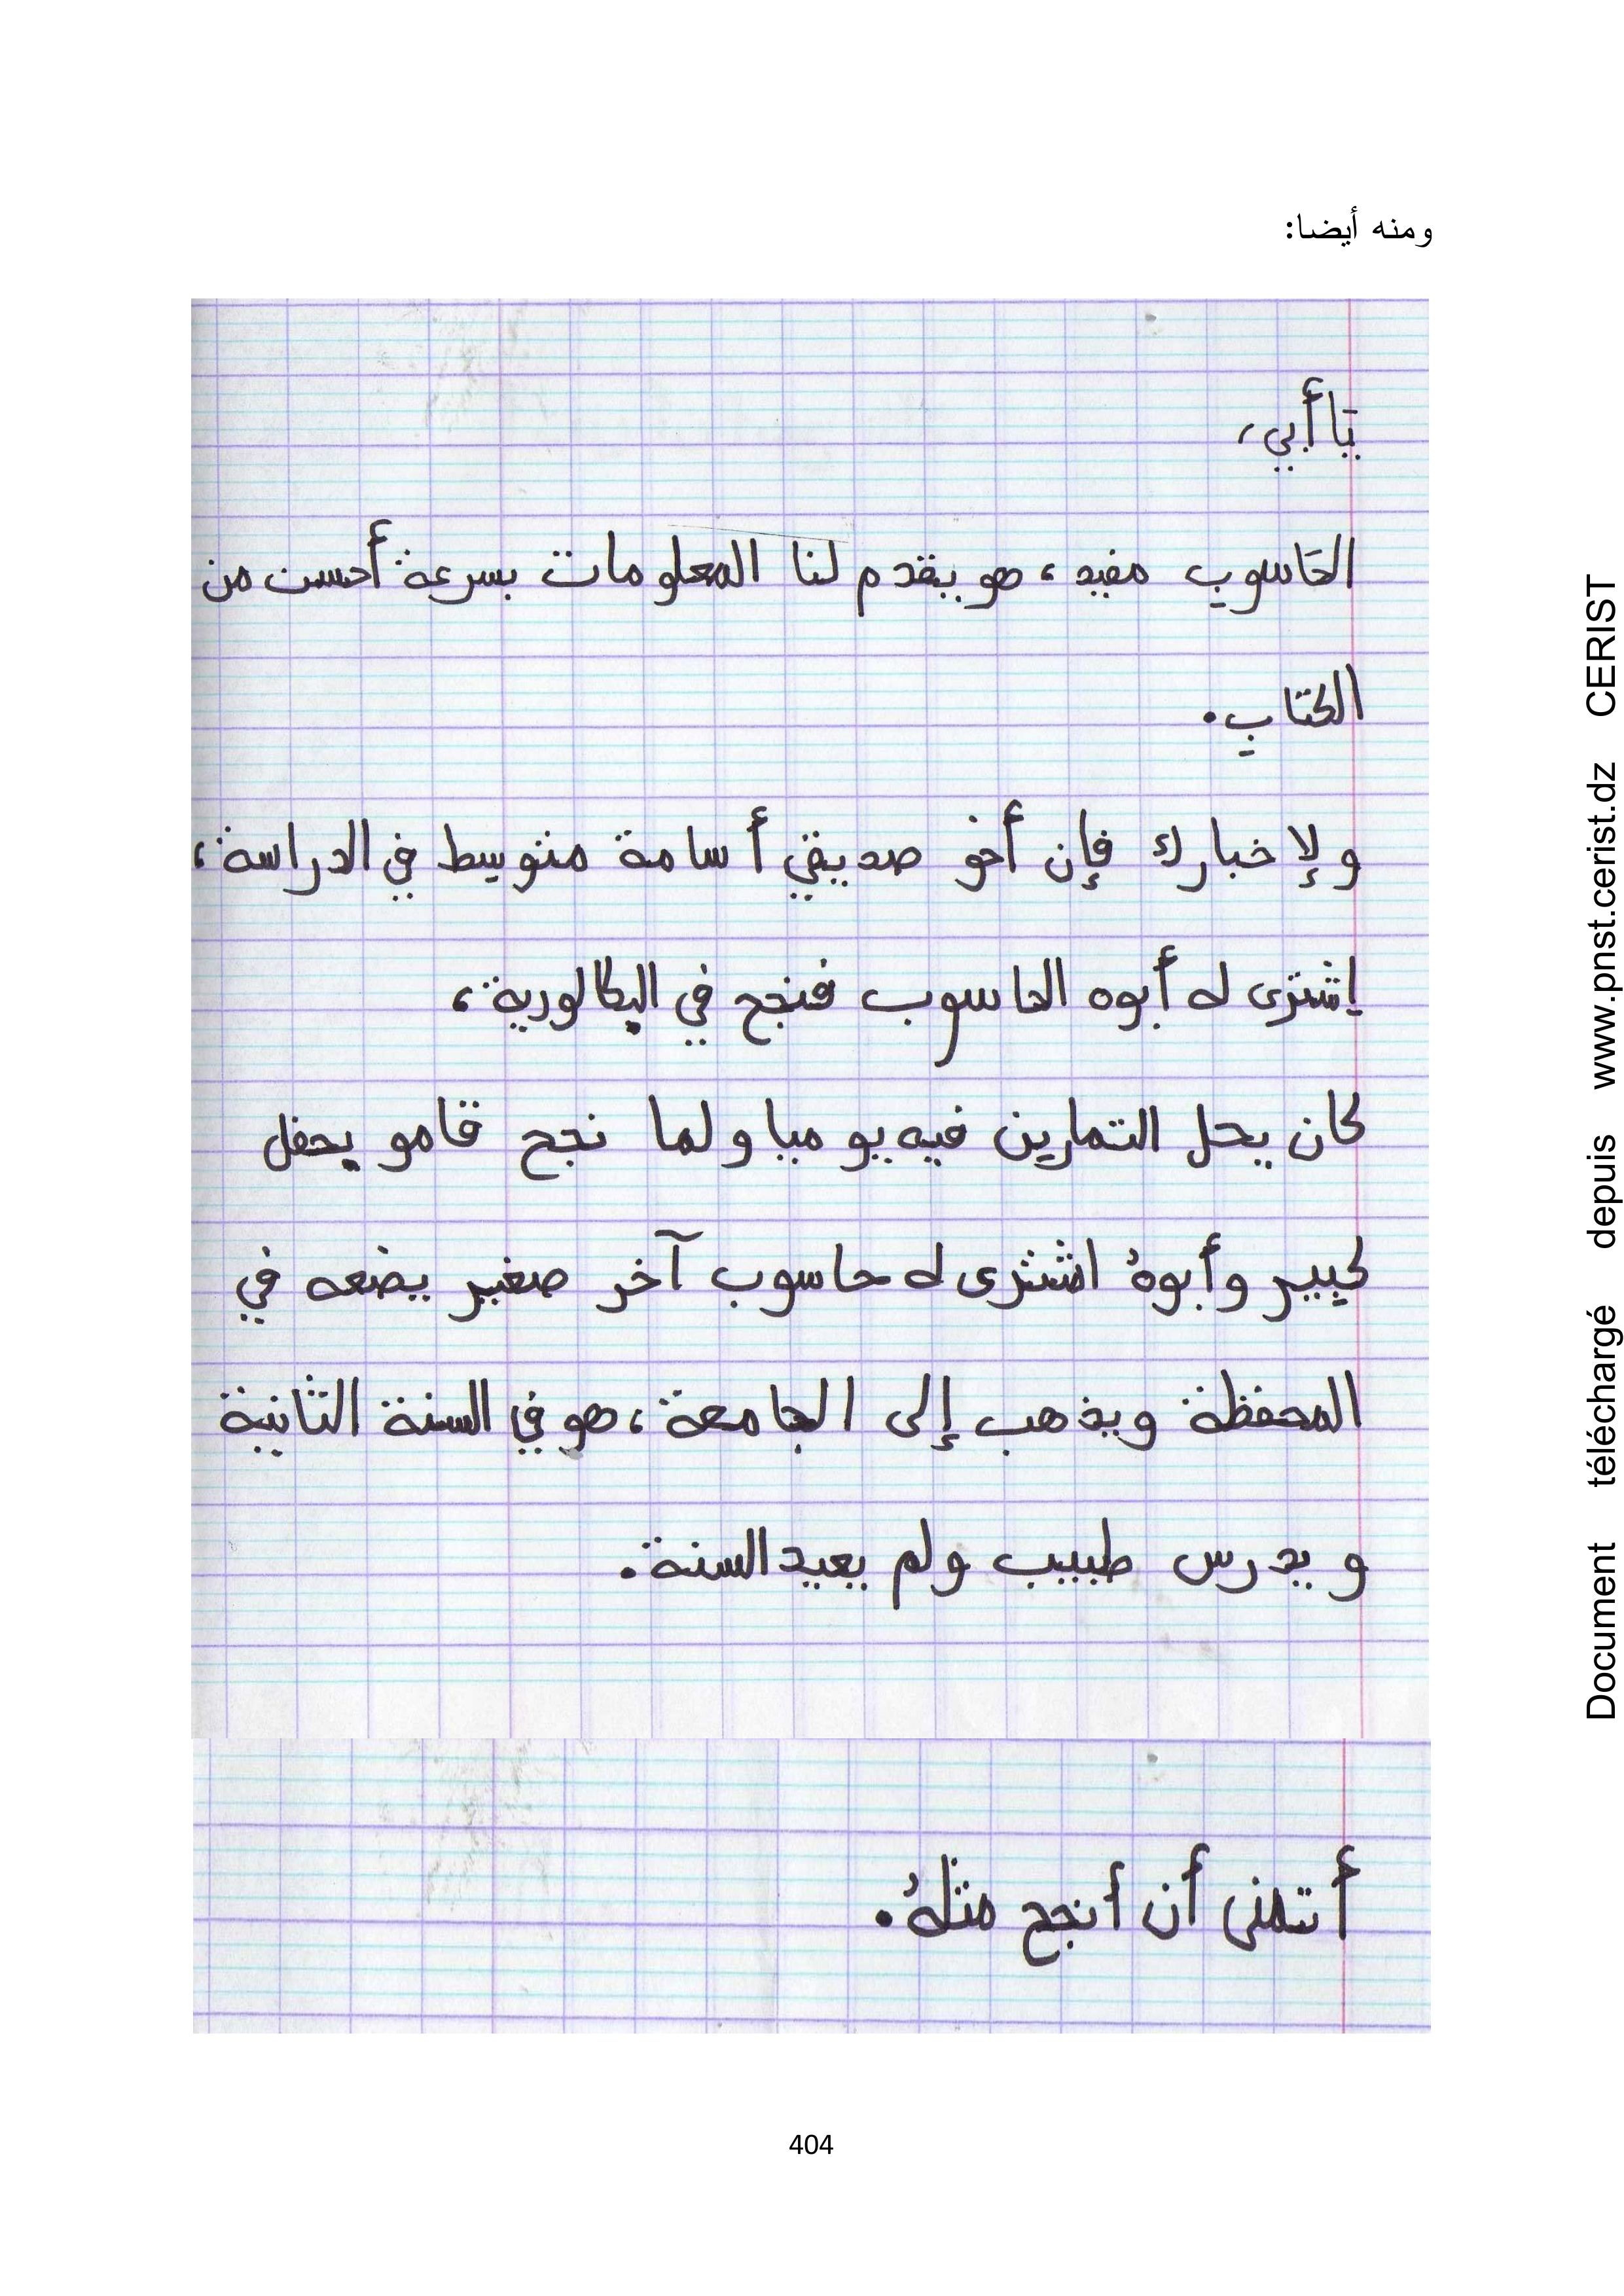 ومنه أيضا:
يَا أبي،
الحَاسوب مفيد، هو يقدم لنا المعلومات بسرعة أحسن من
الكتاب.
ولإخبارك فإن أخو صديقي أسامة متوسط في الدراسة،
إشترى له أبوه الحاسوب فنجح في البكالورية،
كان يحل التمارين فيه يوميا ولما نجح قامو بحفل
كبير وأبوهُ اشترى له حاسوب آخر صغير يضعه في
المحفظة ويذهب إلى الجامعة، هو في السنة الثانية
و يدرس طبيب ولم يعيد السنة.
أتمنى أن أنجح مثلهُ.
404
Document téléchargé depuis www.pnst.cerist.dz CERIST